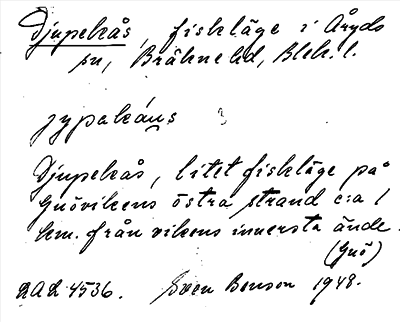 Djupekås, fiskläge i Åryds
sn, Bräkne hd, Blek. l.
jypakáus
Djupekås, litet fiskläge på
Gnövikens östra strand c:a 1
km. från vikens innersta ände.
(Gnö)
LAL 4536. Sven Benson 1948.